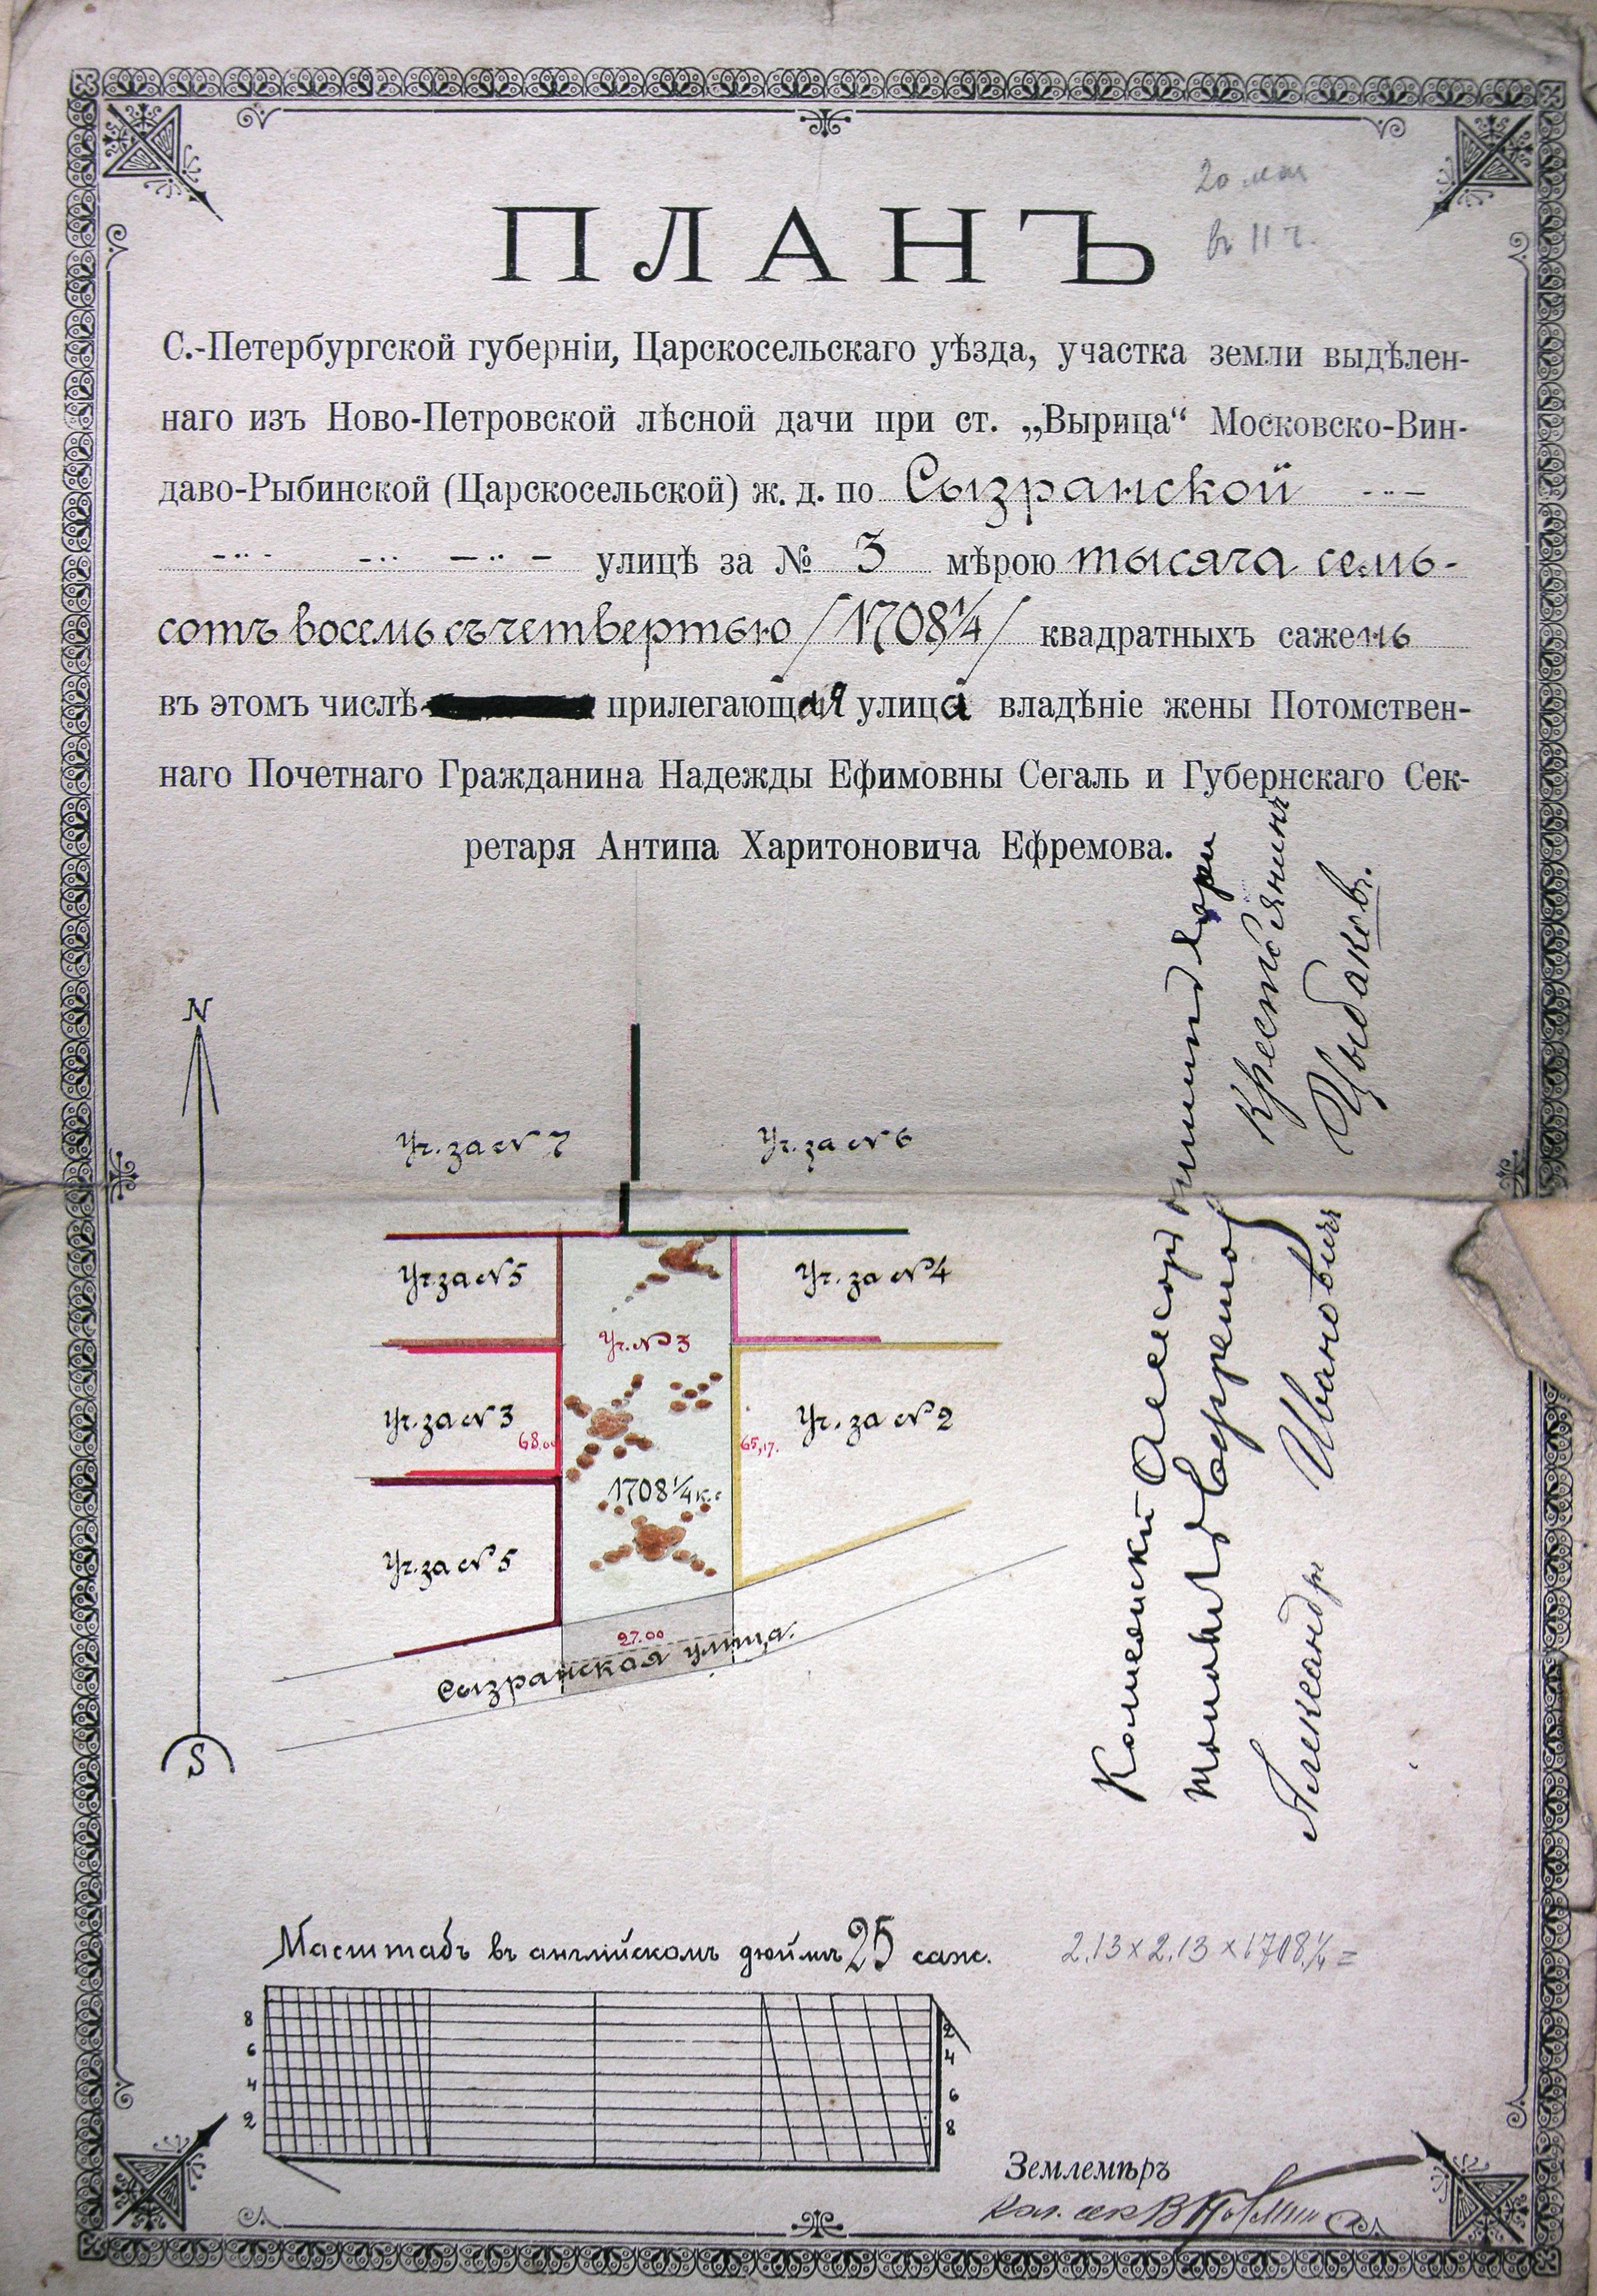 20 мая
въ 11 ч.
ПЛАНЪ
С.-Петербургской губерніи, Царскосельскаго уѣзда, участка земли выдѣлен-
наго изъ Ново-Петровской лѣсной дачи при ст. „Вырица“ Московско-Вин-
даво-Рыбинской (Царскосельской) ж. д. по Сызранской
улицѣ за № 3 мѣрою тысяча семь-
сотъ восемь съ четвертью /1708¼/ квадратныхъ сажень
въ этомъ числѣ прилегающая улица владѣніе жены Потомствен-
наго Почетнаго Гражданина Надежды Ефимовны Сегаль и Губернскаго Сек-
ретаря Антипа Харитоновича Ефремова.
N
Уч. за № 7
Уч. за № 6
Уч. за № 5
Уч. за № 4
Уч. № 3
Уч. за № 3
68.00
65,17.
Уч. за № 2
1708¼ к.с
Уч. за № 5
27.00
Сызранская улица.
S
Ефремов
Крестьянинъ
Александръ Ивановичъ
Цыбаковъ.
Масштабъ въ англійскомъ дюймѣ 25 саж.
2.13 x 2.13 x 1708.¼ =
8
6
4
2
2
4
6
8
Землемѣръ